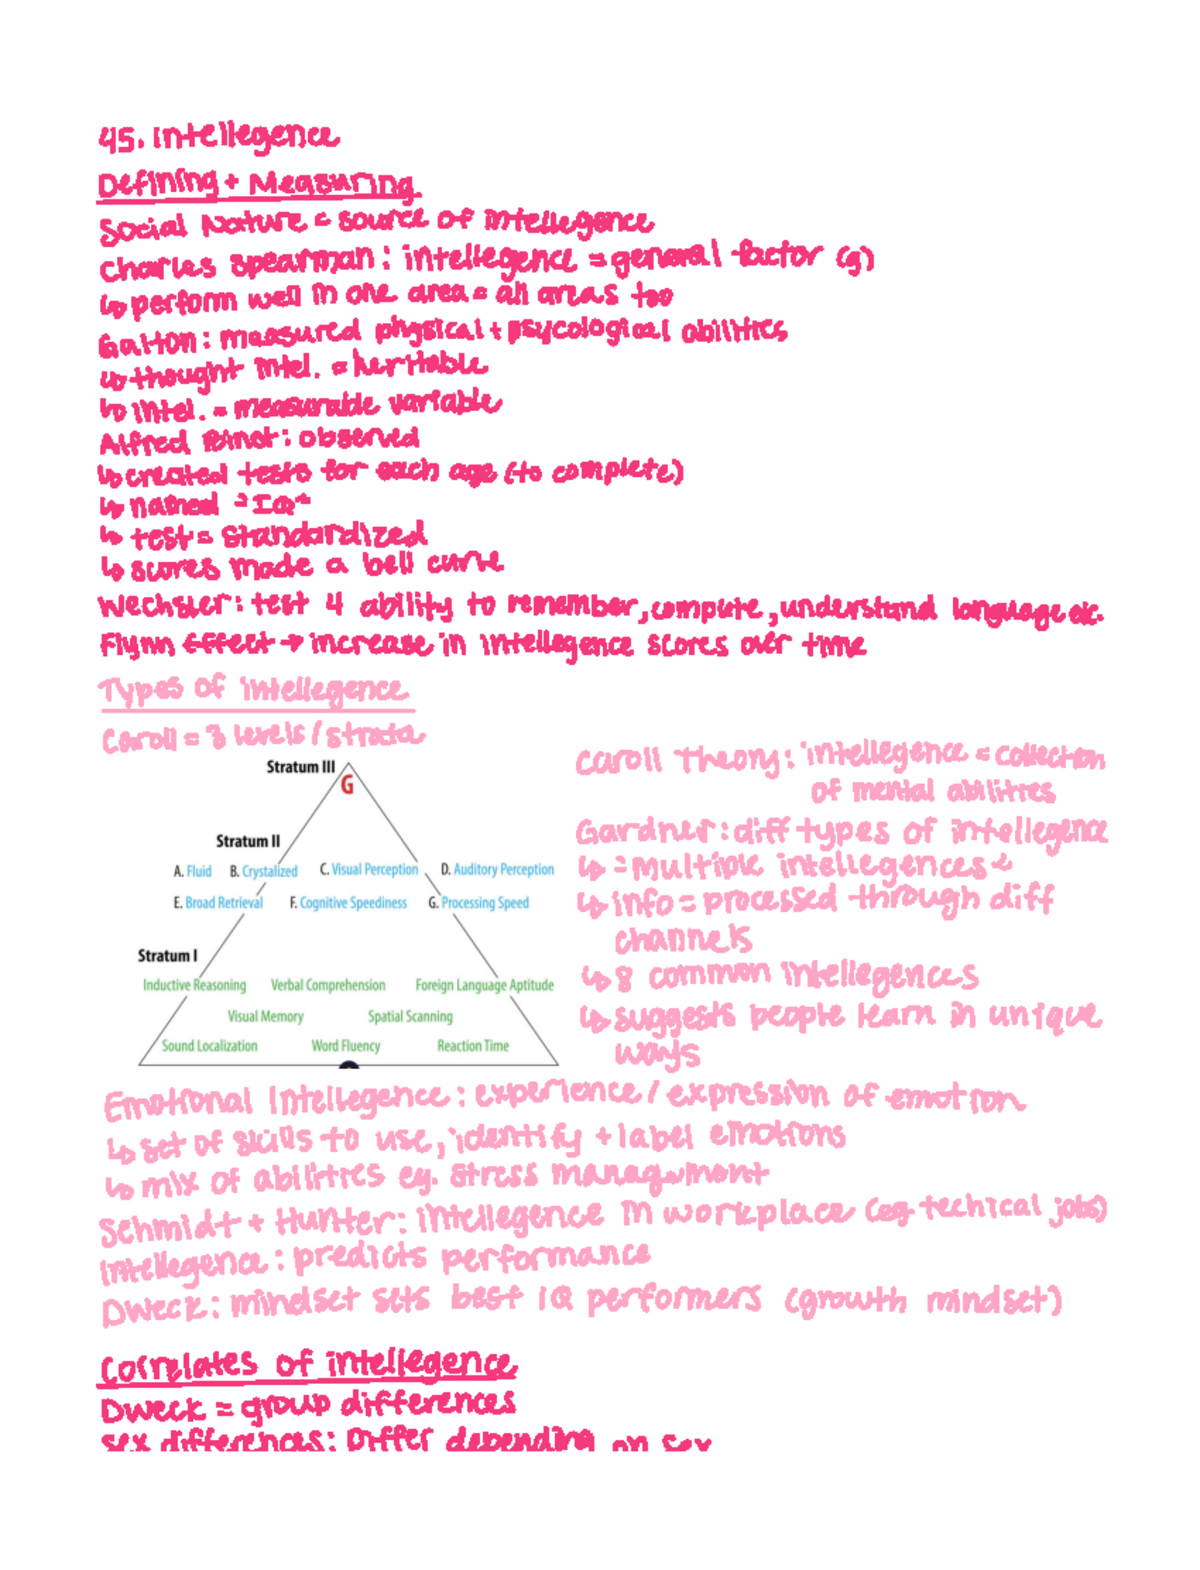 45. Intellegence
Defining + Measuring
Social Nature = source of intellegence
Charles Spearman: intellegence = general factor (g)
↳ perform well in one area = all areas too
Galton: measured physical + psycological abilities
↳ thought intel. = heritable
↳ intel. = measurable variable
Alfred Binet: observed
↳ created tests for each age (to complete)
↳ named "IQ"
↳ test = standardized
↳ scores made a bell curve
Wechsler: test 4 ability to remember, compute, understand language etc.
Flynn Effect → increase in intellegence scores over time
Types of intellegence
Caroll = 3 levels / strata
Stratum III
G
Stratum II
A. Fluid B. Crystalized C. Visual Perception D. Auditory Perception
E. Broad Retrieval F. Cognitive Speediness G. Processing Speed
Stratum I
Inductive Reasoning Verbal Comprehension Foreign Language Aptitude
Visual Memory Spatial Scanning
Sound Localization Word Fluency Reaction Time
Caroll Theory: intellegence = collection
of mental abilities
Gardner: diff types of intellegence
↳ "multiple intellegences"
↳ info = processed through diff
channels
↳ 8 common intellegences
↳ suggests people learn in unique
ways
Emotional Intellegence: experience / expression of emotion
↳ set of skills to use, identify + label emotions
↳ mix of abilities eg. stress management
Schmidt + Hunter: intellegence in workplace (eg techical jobs)
Intellegence: predicts performance
Dweck: mindset sets best IQ performers (growth mindset)
Correlates of intellegence
Dweck = group differences
Sex differences: Differ depending on sex